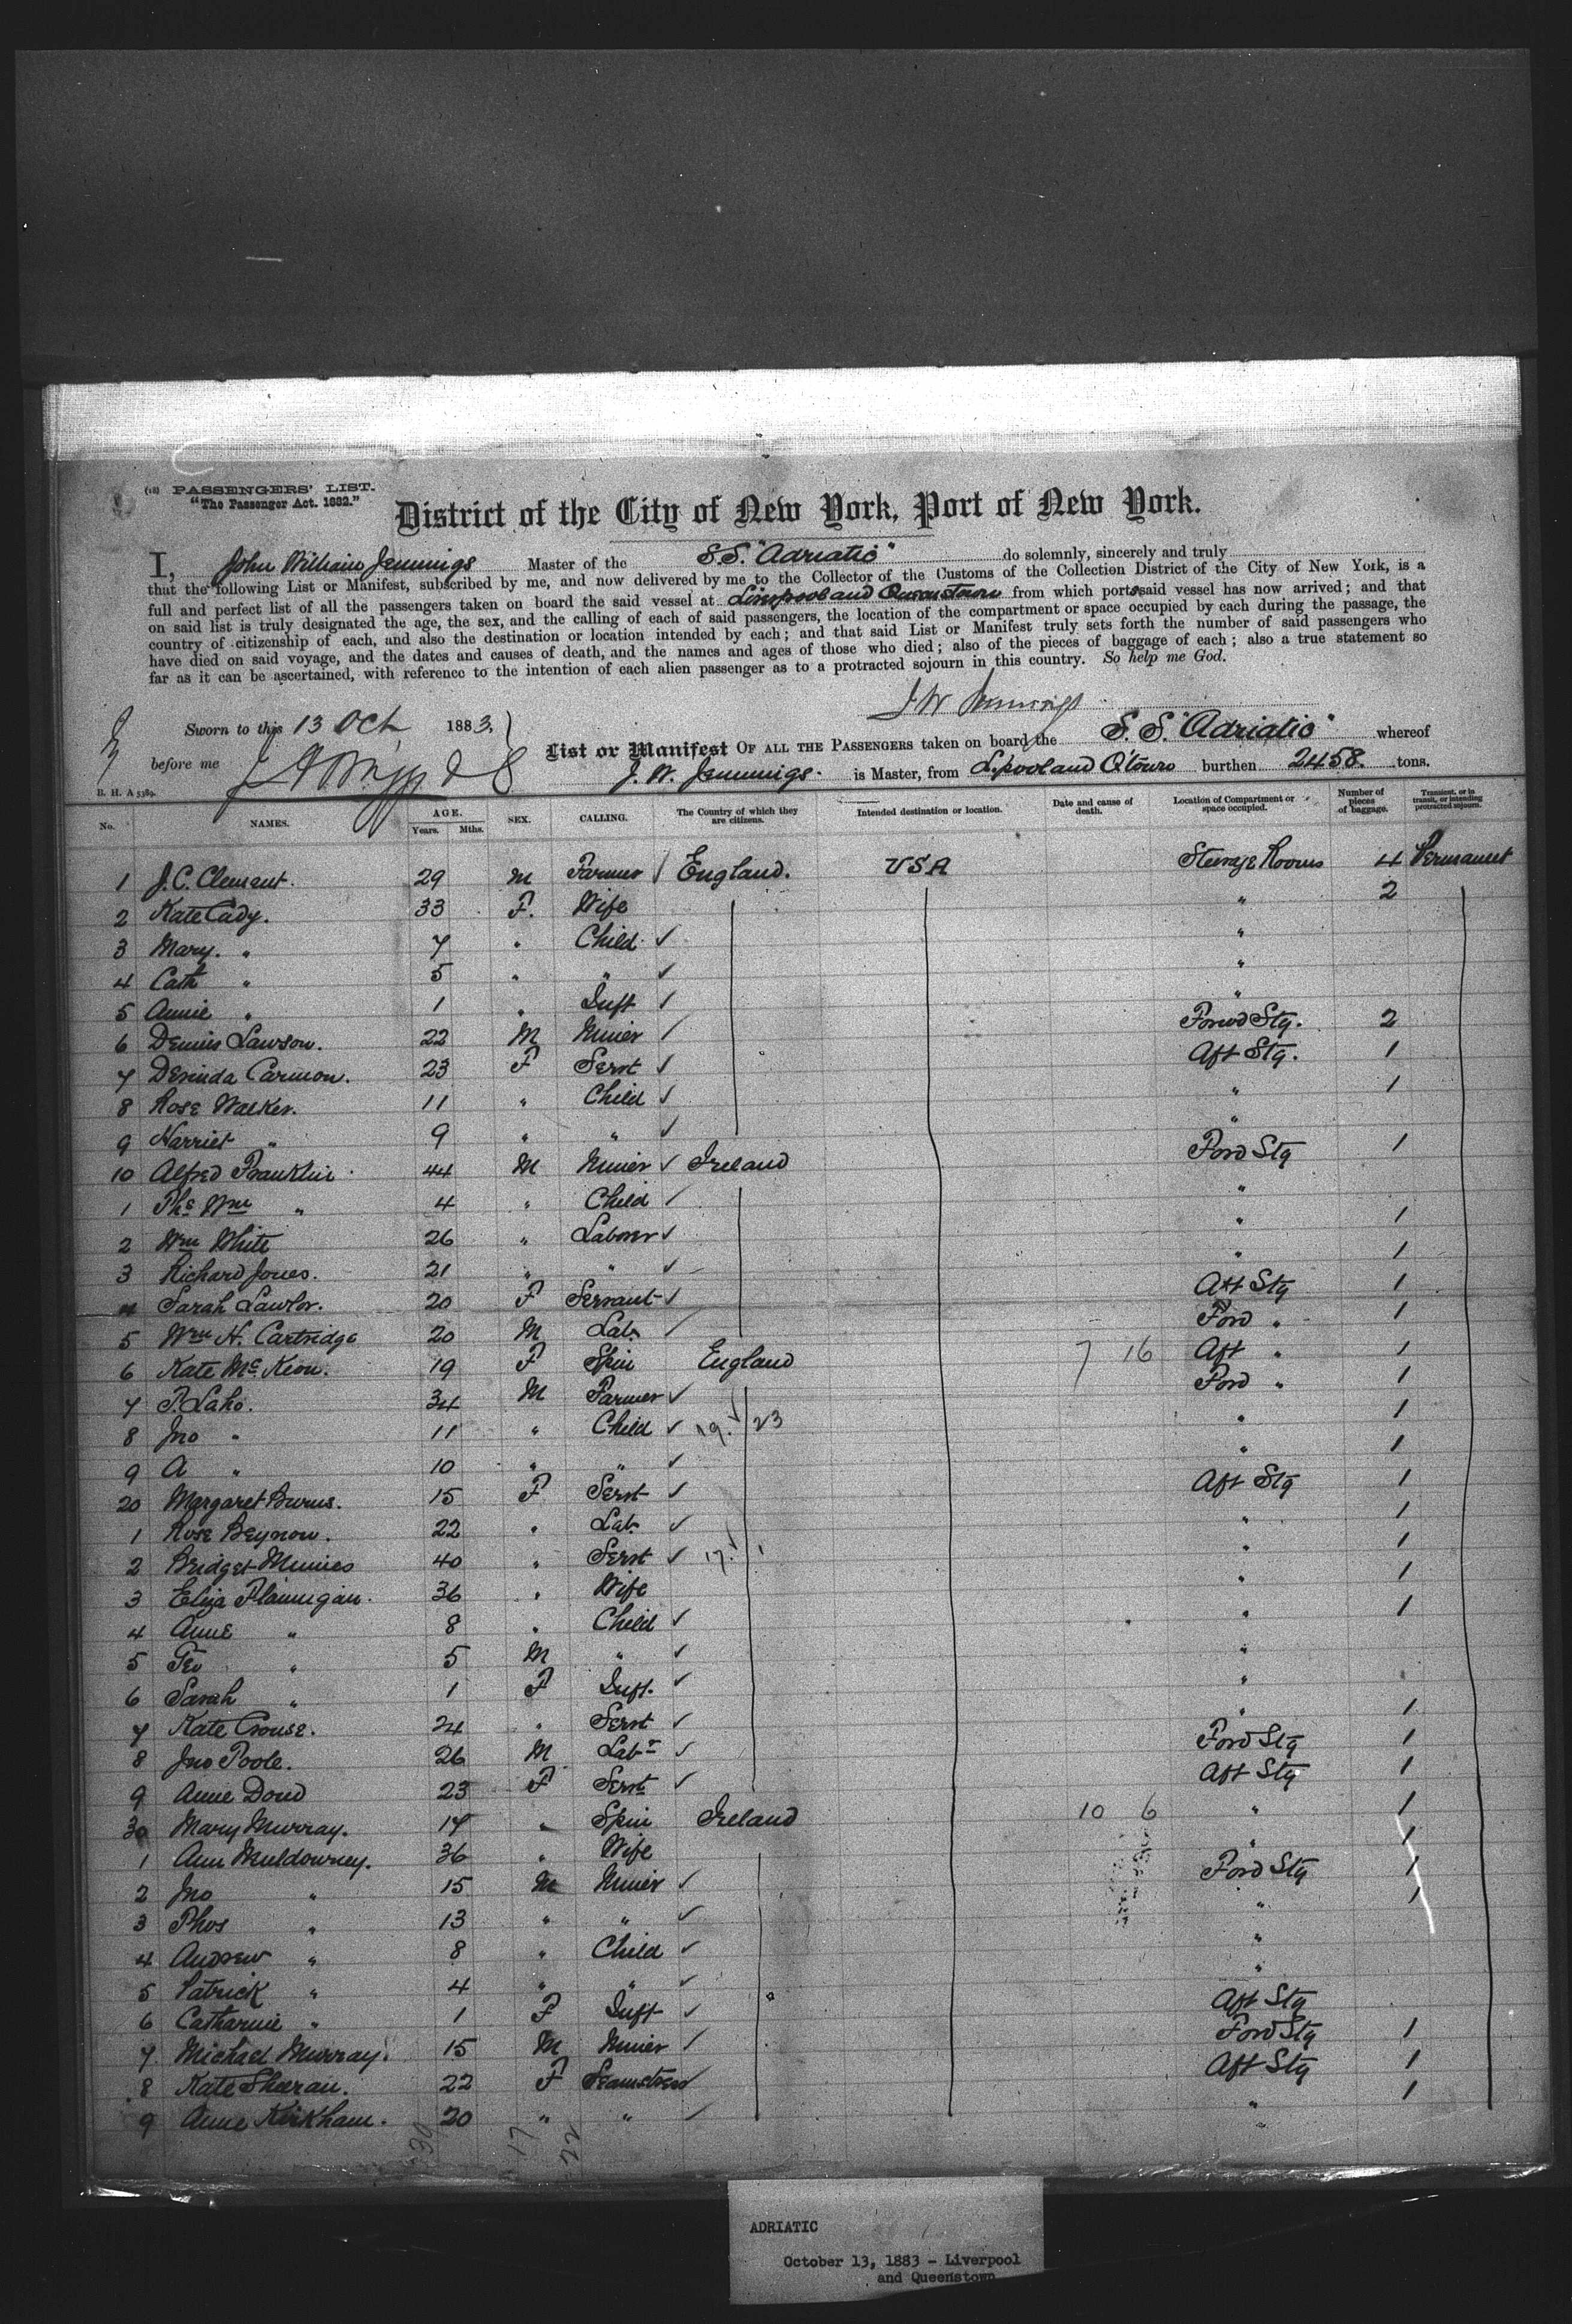 (18) PASSENGERS' LIST.
"The Passenger Act. 1882."
District of the City of New York, Port of New York.
I, John William Jennings Master of the S.S. "Adriatic" do solemnly, sincerely and truly
that the following List or Manifest, subscribed by me, and now delivered by me to the Collector of the Customs of the Collection District of the City of New York, is a
full and perfect list of all the passengers taken on board the said vessel at Liverpool and Queenstown from which ports said vessel has now arrived; and that
on said list is truly designated the age, the sex, and the calling of each of said passengers, the location of the compartment or space occupied by each during the passage, the
country of citizenship of each, and also the destination or location intended by each; and that said List or Manifest truly sets forth the number of said passengers who
have died on said voyage, and the dates and causes of death, and the names and ages of those who died; also of the pieces of baggage of each; also a true statement so
far as it can be ascertained, with reference to the intention of each alien passenger as to a protracted sojourn in this country. So help me God.
J W Jennings
Sworn to this 13 Oct 1883,
before me
List or Manifest OF ALL THE PASSENGERS taken on board the S. S. "Adriatic" whereof
J. W. Jennings. is Master, from L.pool and Q'town burthen 2458. tons.
B. H. A 5389.
No. NAMES. AGE. Years. Mths. SEX. CALLING. The Country of which they are citizens. Intended destination or location. Date and cause of death. Location of Compartment or space occupied. Number of pieces of baggage. Transient, or in transit, or intending protracted sojourn.
1 J.C. Clement. 29 M Farmer / England. USA Steerage Rooms 4 Permanent
2 Kate Cady. 33 F. Wife " 2
3 Mary. " 7 " Child ✓ "
4 Cath " 5 " " ✓ "
5 Annie " 1 " Inft / "
6 Dennis Lawson. 22 M Miner / Forwd Stg. 2
7 Derinda Carmon. 23 F Servt ✓ Aft Stg. 1
8 Rose Walker. 11 " Child ✓ " 1
9 Harriet " 9 " " ✓ "
10 Alfred Franklin 44 M Miner ✓ Ireland Ford Stg 1
1 Ths Wm " 4 " Child / "
2 Wm White 26 " Laborer ✓ " 1
3 Richard Jones. 21 " " ✓ " 1
4 Sarah Lawlor. 20 F Servant ✓ Aft Stg 1
5 Wm H. Cartridge 20 M Lab. / Ford " 1
6 Kate McKeon. 19 F Spin England 7 16 Aft " 1
7 P. Laho. 34 M Farmer ✓ Ford " 1
8 Jno " 11 " Child ✓ 19. ✓ 23 " 1
9 A " 10 " " ✓ " 1
20 Margaret Burns. 15 F Servt ✓ Aft Stg 1
1 Rose Beynow. 22 " Lab. ✓ " 1
2 Bridget 40 " Servt ✓ 17. ✓ 1 " 1
3 Eliza Flannigan. 36 " Wife " 1
4 Anne " 8 " Child ✓ " 1
5 Geo " 5 M " ✓ "
6 Sarah " 1 F Inft. ✓ "
7 Kate Crouse. 24 " Servt ✓ " 1
8 Jno Poole. 26 M Labr ✓ Ford Stg 1
9 Anne Dowd 23 F Servt ✓ Aft Stg 1
30 Mary Murray. 17 " Spin Ireland 10 6 " 1
1 Ann Muldowney. 36 " Wife " 1
2 Jno " 15 M Miner ✓ Ford Stg 1
3 Thos " 13 " " ✓ " 1
4 Andrew " 8 " Child ✓ "
5 Patrick " 4 " " ✓ "
6 Catharine " 1 F Inft ✓ Aft Stg
7 Michael Murray. 15 M Miner / Ford Stg 1
8 Kate Sheeran. 22 F Seamstress ✓ Aft Stg 1
9 Anne Kirkham. 20 " " / " 1
30 17 22
ADRIATIC
October 13, 1883 - Liverpool
and Queenstown